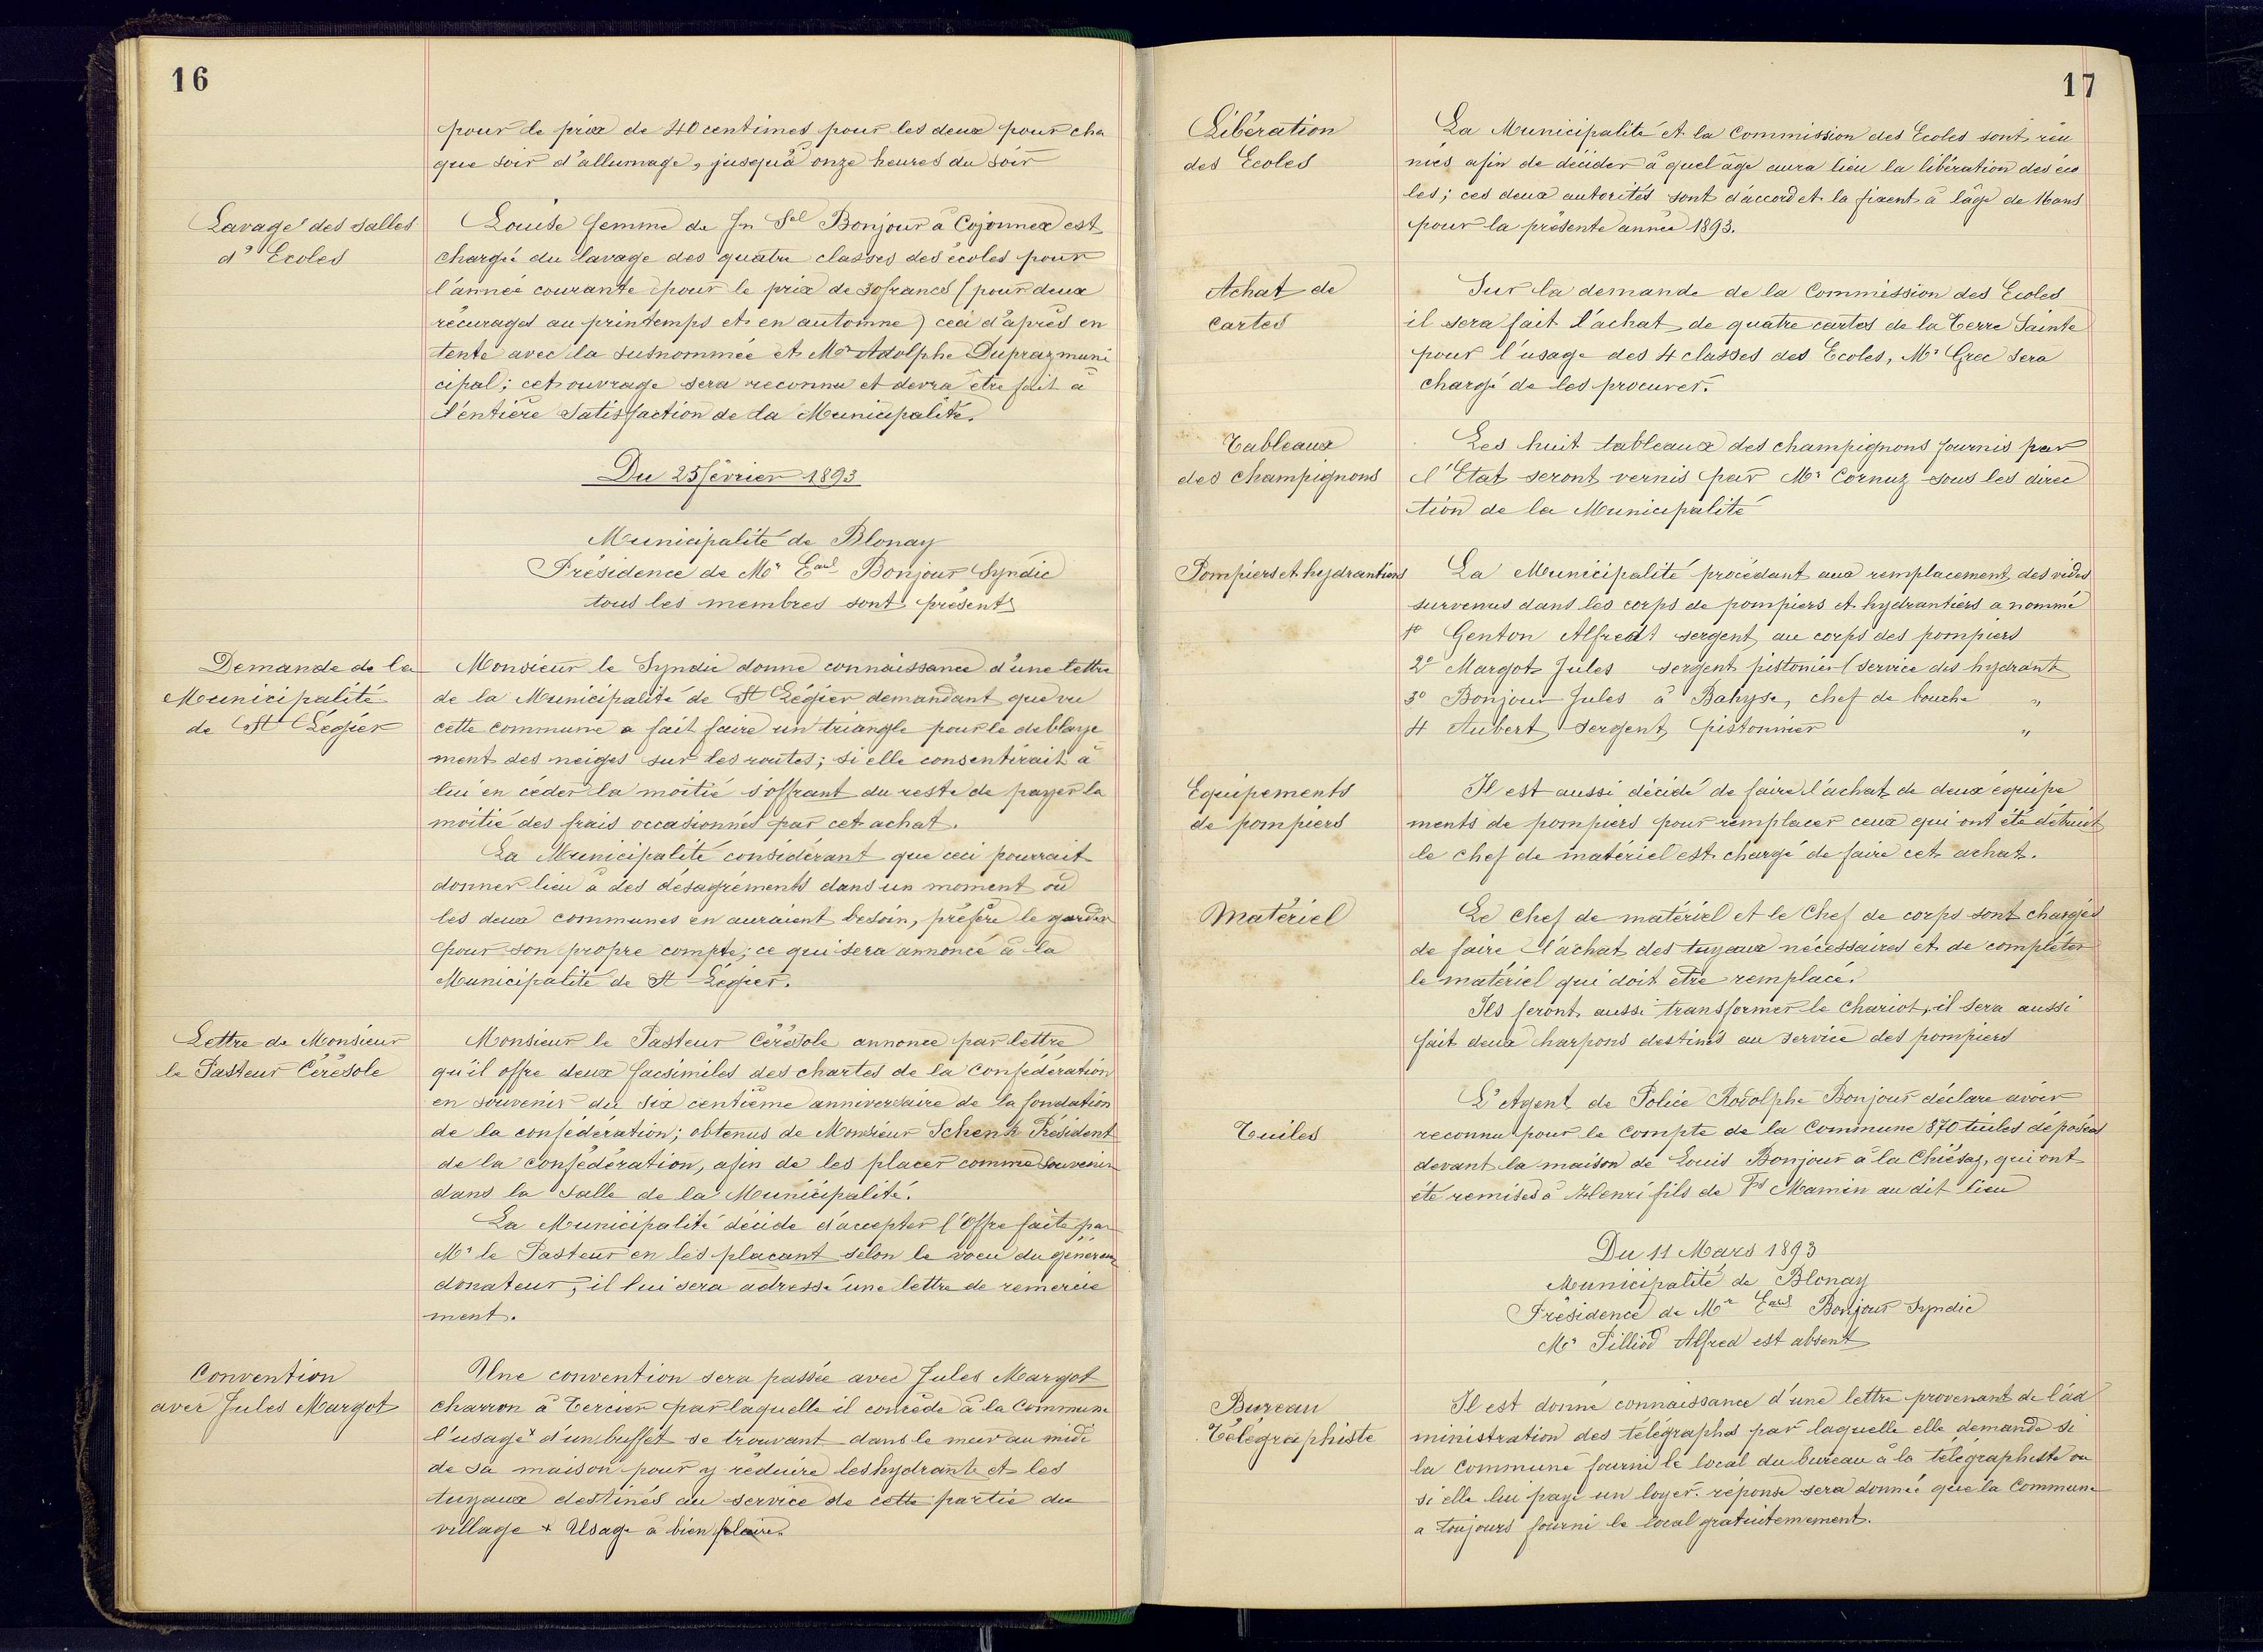 16
pour le prix de 40 centimes pour les deux pour cha
que soir d'allumage, jusqu'à onze heures du soir
Lavage des salles
d'Ecoles
Louise femme de Jn Sel Bonjour à Cojonnex est
chargée du lavage des quatre classes des écoles pour
l'année courante pour le prix de 30 francs (pour deux
récurages au printemps et en automne) ceci d'après en
tente avec la susnommée et Mr Adolphe Dupraz muni
cipal; cet ouvrage sera reconnu et devra être fait à
l'entière satisfaction de la Municipalité.
Du 25 février 1893
Municipalité de Blonay
Présidence de Mr Eml Bonjour Syndic
tous les membres sont présents
Demande de la
Municipalité
de St Légier
Monsieur le Syndic donne connaissance d'une lettre
de la Municipalité de St Légier demandant que vu
cette commune a fait faire un triangle pour le deblaye
ment des neiges sur les routes; si elle consentirait à
lui en céder la moitié s'offrant du reste de payer la
moitié des frais occasionnés par cet achat.
La Municipalité considérant que ceci pourrait
donner lieu à des désagréments dans un moment où
les deux communes en auraient besoin, préfère le garder
pour son propre compte; ce qui sera annoncé à la
Municipalité de St Légier.
Lettre de Monsieur
le Pasteur Cérésole
Monsieur le Pasteur Cérésole annonce par lettre
qu'il offre deux facsimiles des chartes de la Confédération
en souvenir du six centième anniversaire de la fondation
de la confédération; obtenus de Monsieur Schenk Président
de la confédération, afin de les placer comme souvenir
dans la salle de la Municipalité.
La Municipalité décide d'accepter l'Offre faite par
Mr le Pasteur en les placant selon le voeu du généreux
donateur; il lui sera adressé une lettre de remercie
ment.
Convention
avec Jules Margot
Une convention sera passée avec Jules Margot
charron à Tercier par laquelle il concède à la Commune
l'usage x d'un buffet se trouvant dans le mur au midi
de sa maison pour y réduire les hydrants et les
tuyaux destinés au service de cette partie du
village x Usage à bien plaire.
17
Libération
des Ecoles
La Municipalité et la Commission des Ecoles sont réu
nies afin de décider à quel âge aura lieu la libération des éco
les; ces deux autorités sont d'accord et la fixent à l'âge de 16 ans
pour la présente année 1893.
Achat de
cartes
Sur la demande de la Commission des Ecoles
il sera fait l'achat de quatre cartes de la Terre Sainte
pour l'usage des 4 classes des Ecoles, Mr Grec sera
chargé de les procurer.
Tableaux
des champignons
Les huit tableaux des champignons fournis par
l'Etat seront vernis par Mr Cornuz sous les direc
tion de la Municipalité
Pompiers et hydrantiers
La Municipalité procédant aux remplacement des vides
survenus dans les corps de pompiers et hydrantiers a nommé
1o Genton Alfred sergent au corps des pompiers
2o Margot Jules sergent pistonier (service des hydrants
3o Bonjour Jules à Bahyse, chef de bouche "
4 Aubert sergent pistonnier "
Equipements
de pompiers
Il est aussi décidé de faire l'achat de deux équipe
ments de pompiers pour remplacer ceux qui ont été détruit
le chef de matériel est chargé de faire cet achat.
Matériel
Le chef de matériel et le Chef de corps sont chargés
de faire l'achat des tuyaux nécessaires et de compléter
le matériel qui doit être remplacé.
Ils feront aussi transformer le chariot, il sera aussi
fait deux harpons destinés au service des pompiers
Tuiles
L'Agent de Police Rodolphe Bonjour déclare avoir
reconnu pour le compte de la Commune 870 tuiles déposées
devant la maison de Louis Bonjour à la Chiésaz, qui ont
été remises à Henri fils de Fs Mamin au dit lieu
Du 11 Mars 1893
Municipalité de Blonay
Présidence de Mr Eml Bonjour Syndic
Mr Pilliod Alfred est absent
Bureau
Télégraphiste
Il est donné connaissance d'une lettre provenant de l'ad
ministration des télégraphes par laquelle elle demande si
la Commune fourni le local du bureau à la télégraphiste ou
si elle lui paye un loyer. réponse sera donnée que la Commune
a toujours fourni le local gratuitemement.